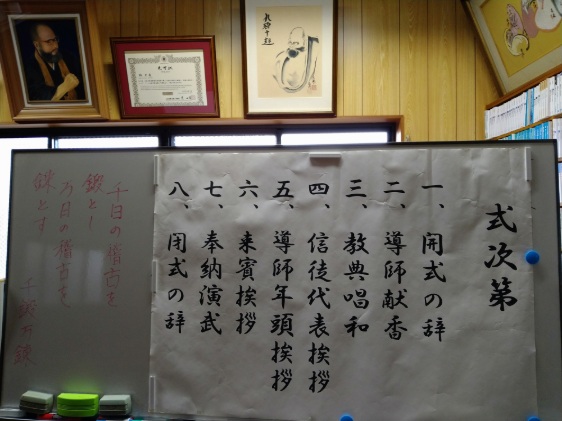 式次第
一、開式の辞
二、導師献香
三、教典唱和
四、信徒代表挨拶
五、導師年頭挨拶
六、来賓挨拶
七、奉納演武
八、閉式の辞
千日の稽古を
鍛とし
万日の稽古を
錬とす
千鍛万錬